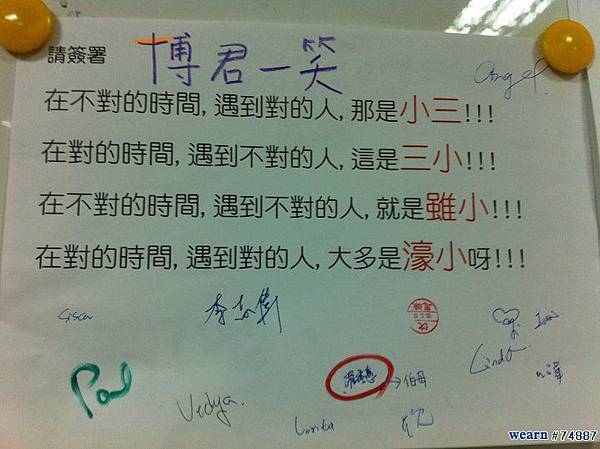 請簽署
博君一笑
Angel
在不對的時間,遇到對的人,那是小三!!!
在對的時間,遇到不對的人,這是三小!!!
在不對的時間,遇到不對的人,就是雖小!!!
在對的時間,遇到對的人,大多是濠小呀!!!
Linda
Paul
Vedya.
→伯母
Lorita
wearn #74887